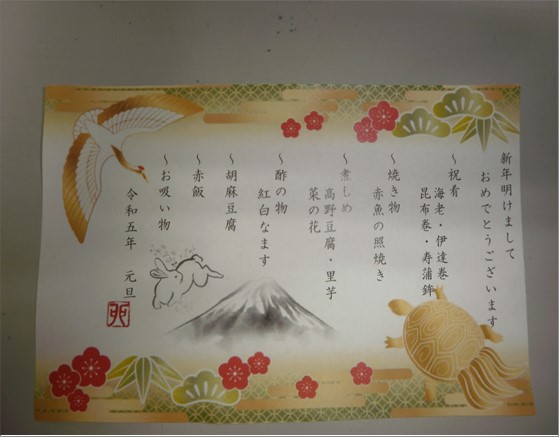 新年明けまして
おめでとうございます
～祝肴
海老・伊達巻
昆布巻・寿蒲鉾
～焼き物
赤魚の照焼き
～煮しめ
高野豆腐・里芋
菜の花
～酢の物
紅白なます
～胡麻豆腐
～赤飯
～お吸い物
令和五年　元旦